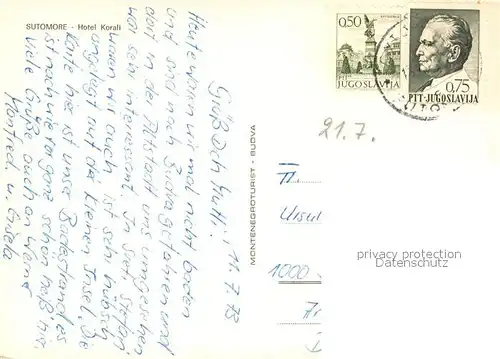 SUTOMORE - Hotel Korali
Grüß Dich Mutti! 11.7.73
Heute waren wir mal nicht baden
und sind nach Budva gefahren und
dort in der Altstadt uns umgesehen
war sehr interessant. In Svet Stefan
waren wir auch ist sehr hübsch
angelegt auf der kleinen Insel. Die
Karte hier ist unser Badestrand. Es
ist nach wie vor ganz schön heiß hier.
Viele Grüße auch an
Manfred u. Gisela
MONTENEGROTURIST - BUDVA
0,50
JUGOSLAVIJA
0,75
PTT JUGOSLAVIJA
21.7.
1000
privacy protection
Datenschutz